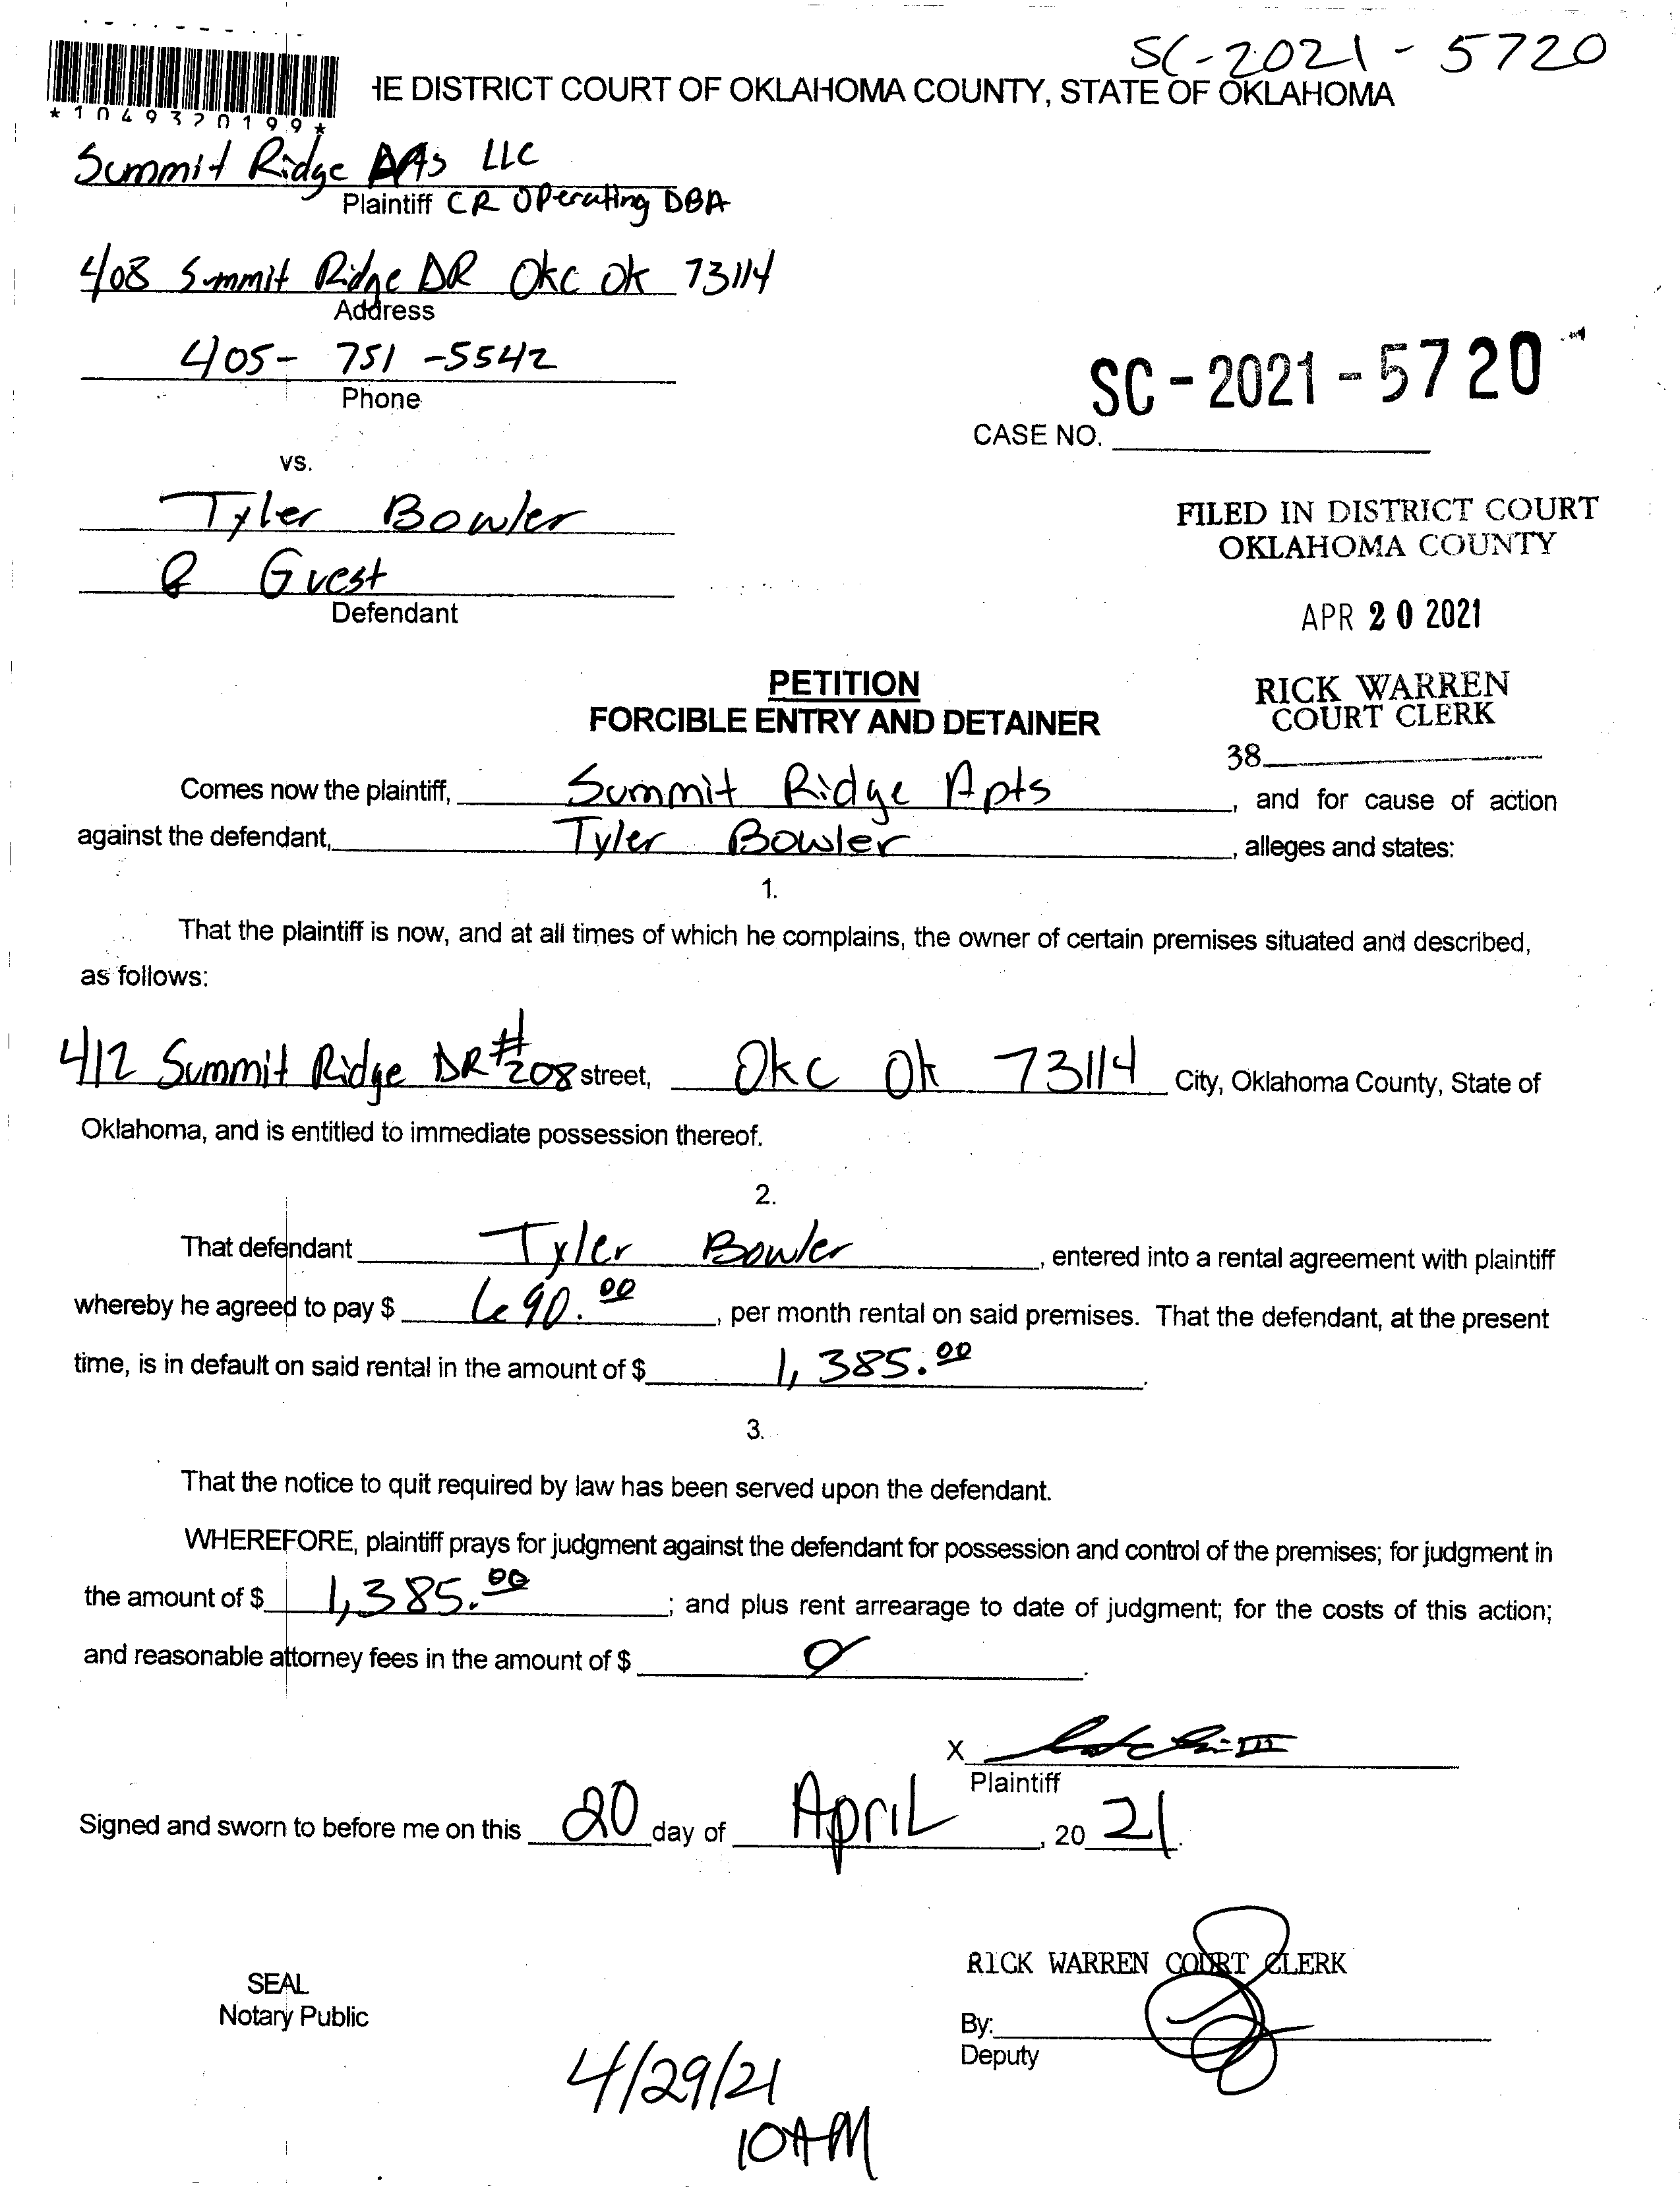 SC-2021-5720
HE DISTRICT COURT OF OKLAHOMA COUNTY, STATE OF OKLAHOMA
*1049320199*
Summit Ridge LLC
Plaintiff CR Operating DBA
408 Summit Ridge DR Okc Ok 73114
Address
405-751-5542
Phone
SC-2021-5720
CASE NO.
vs.
Tyler Bowler
& Guest
Defendant
FILED IN DISTRICT COURT
OKLAHOMA COUNTY
APR 20 2021
RICK WARREN
COURT CLERK
38
PETITION
FORCIBLE ENTRY AND DETAINER
Comes now the plaintiff, Summit Ridge Apts, and for cause of action
against the defendant, Tyler Bowler, alleges and states:
1.
That the plaintiff is now, and at all times of which he complains, the owner of certain premises situated and described,
as follows:
412 Summit Ridge DR #208 street, Okc Ok 73114 City, Oklahoma County, State of
Oklahoma, and is entitled to immediate possession thereof.
2.
That defendant Tyler Bowler, entered into a rental agreement with plaintiff
whereby he agreed to pay $ 690.00, per month rental on said premises. That the defendant, at the present
time, is in default on said rental in the amount of $ 1,385.00.
3.
That the notice to quit required by law has been served upon the defendant.
WHEREFORE, plaintiff prays for judgment against the defendant for possession and control of the premises; for judgment in
the amount of $ 1,385.00; and plus rent arrearage to date of judgment; for the costs of this action;
and reasonable attorney fees in the amount of $ 0.
X
Plaintiff
Signed and sworn to before me on this 20 day of April, 2021.
RICK WARREN COURT CLERK
SEAL
Notary Public
By:
Deputy
4/29/21
10AM